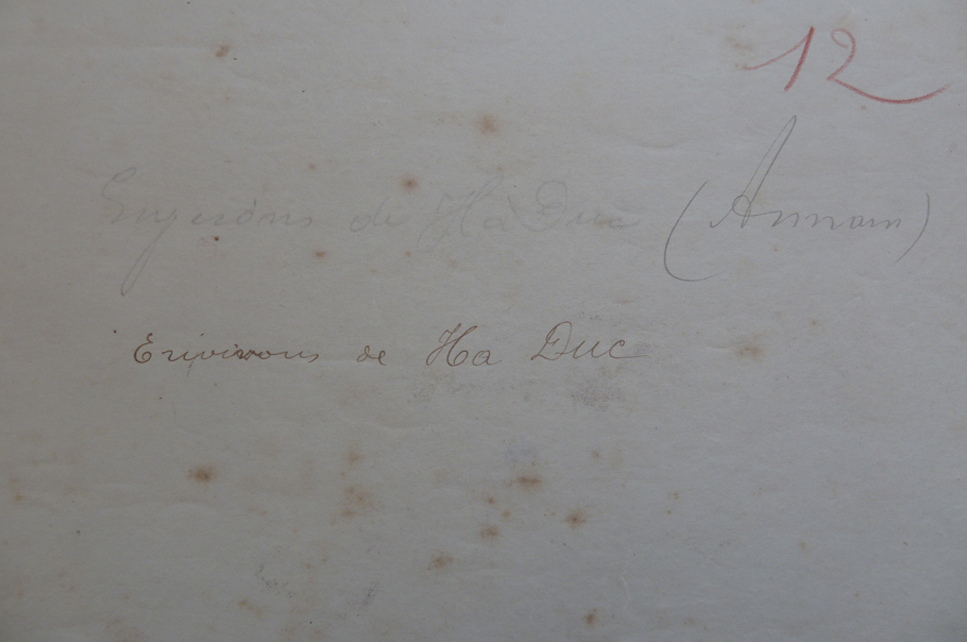 12
Environs de Ha Duc (Annam)
Environs de Ha Duc